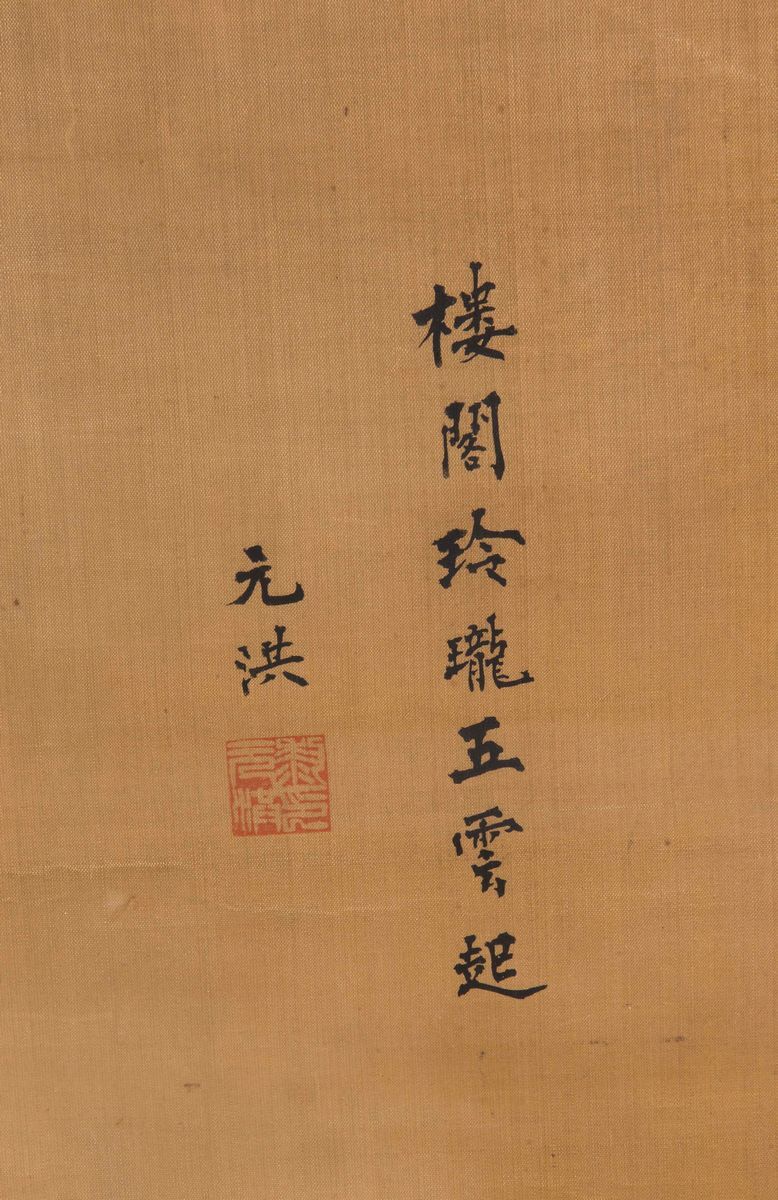 樓閣玲瓏五雲起
元洪